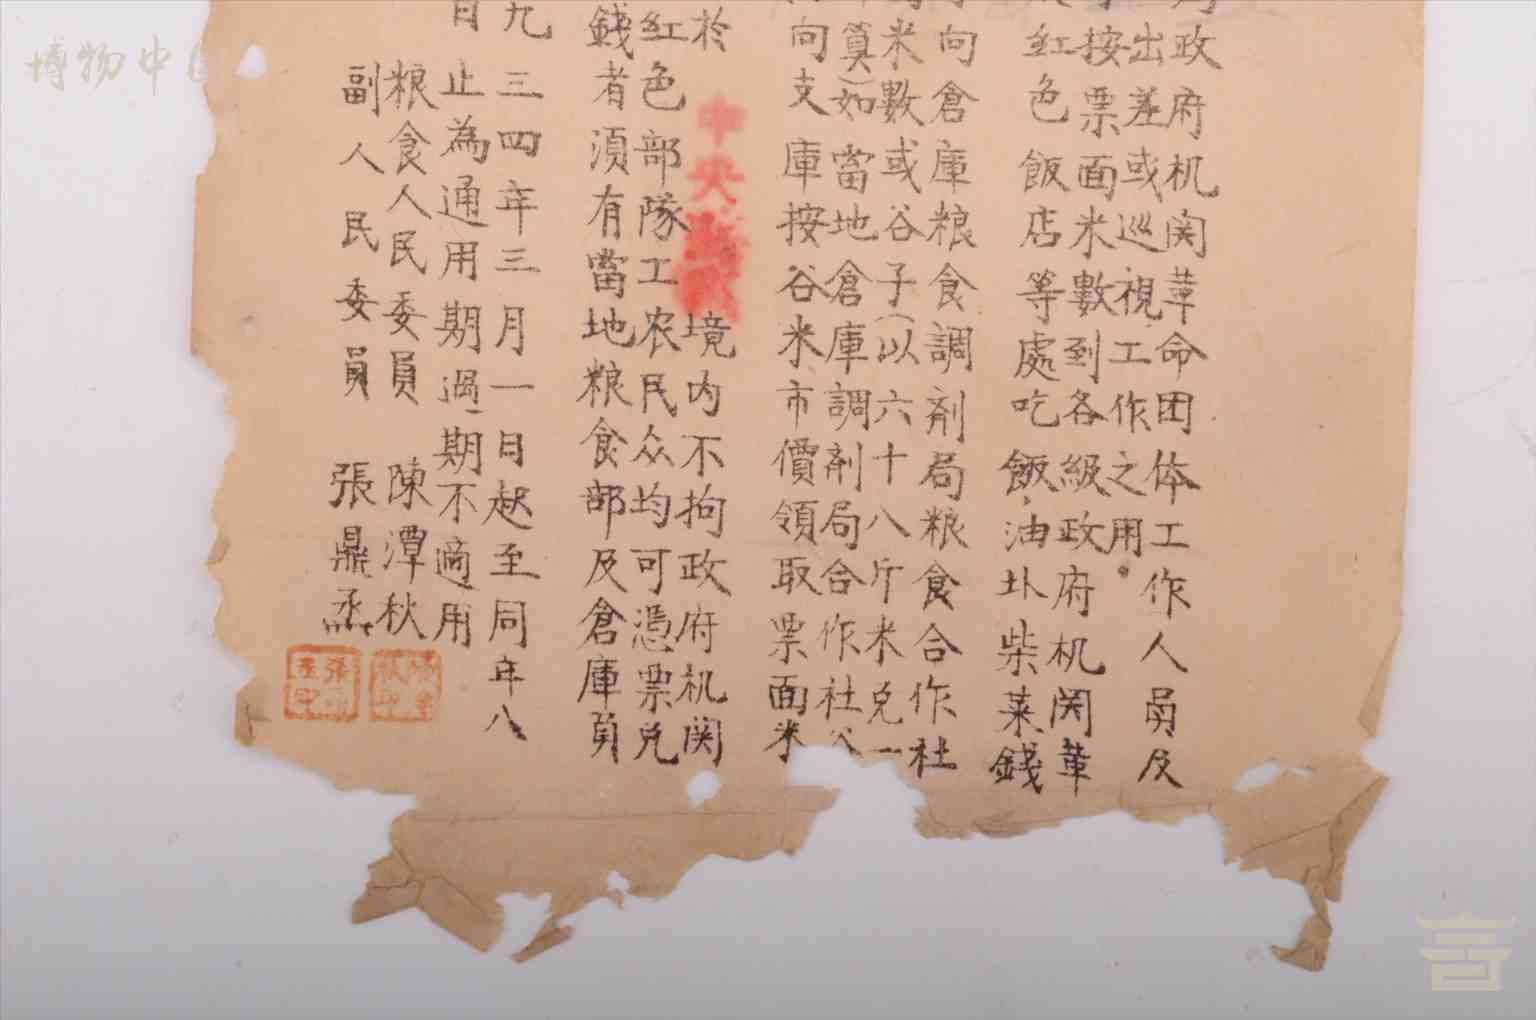 政府机関革命团体工作人員及
出差或巡視工作之用。
按票面米數到各級政府机関革
紅色飯店等處吃飯,油圤柴菜錢
向倉庫粮食調剂局粮食合作社
米數或谷子(以六十八斤米兑一
算)如當地倉庫調剂局合作社
向支庫按谷米市價領取票面米
於中央 境内不拘政府机関
紅色部隊工农民众均可憑票兑
錢者須有當地粮食部及倉庫負
九三四年三月一日起至同年八
日止為通用期過期不適用
粮食人民委員 陳潭秋
副人民委員 張鼎丞
博物中国